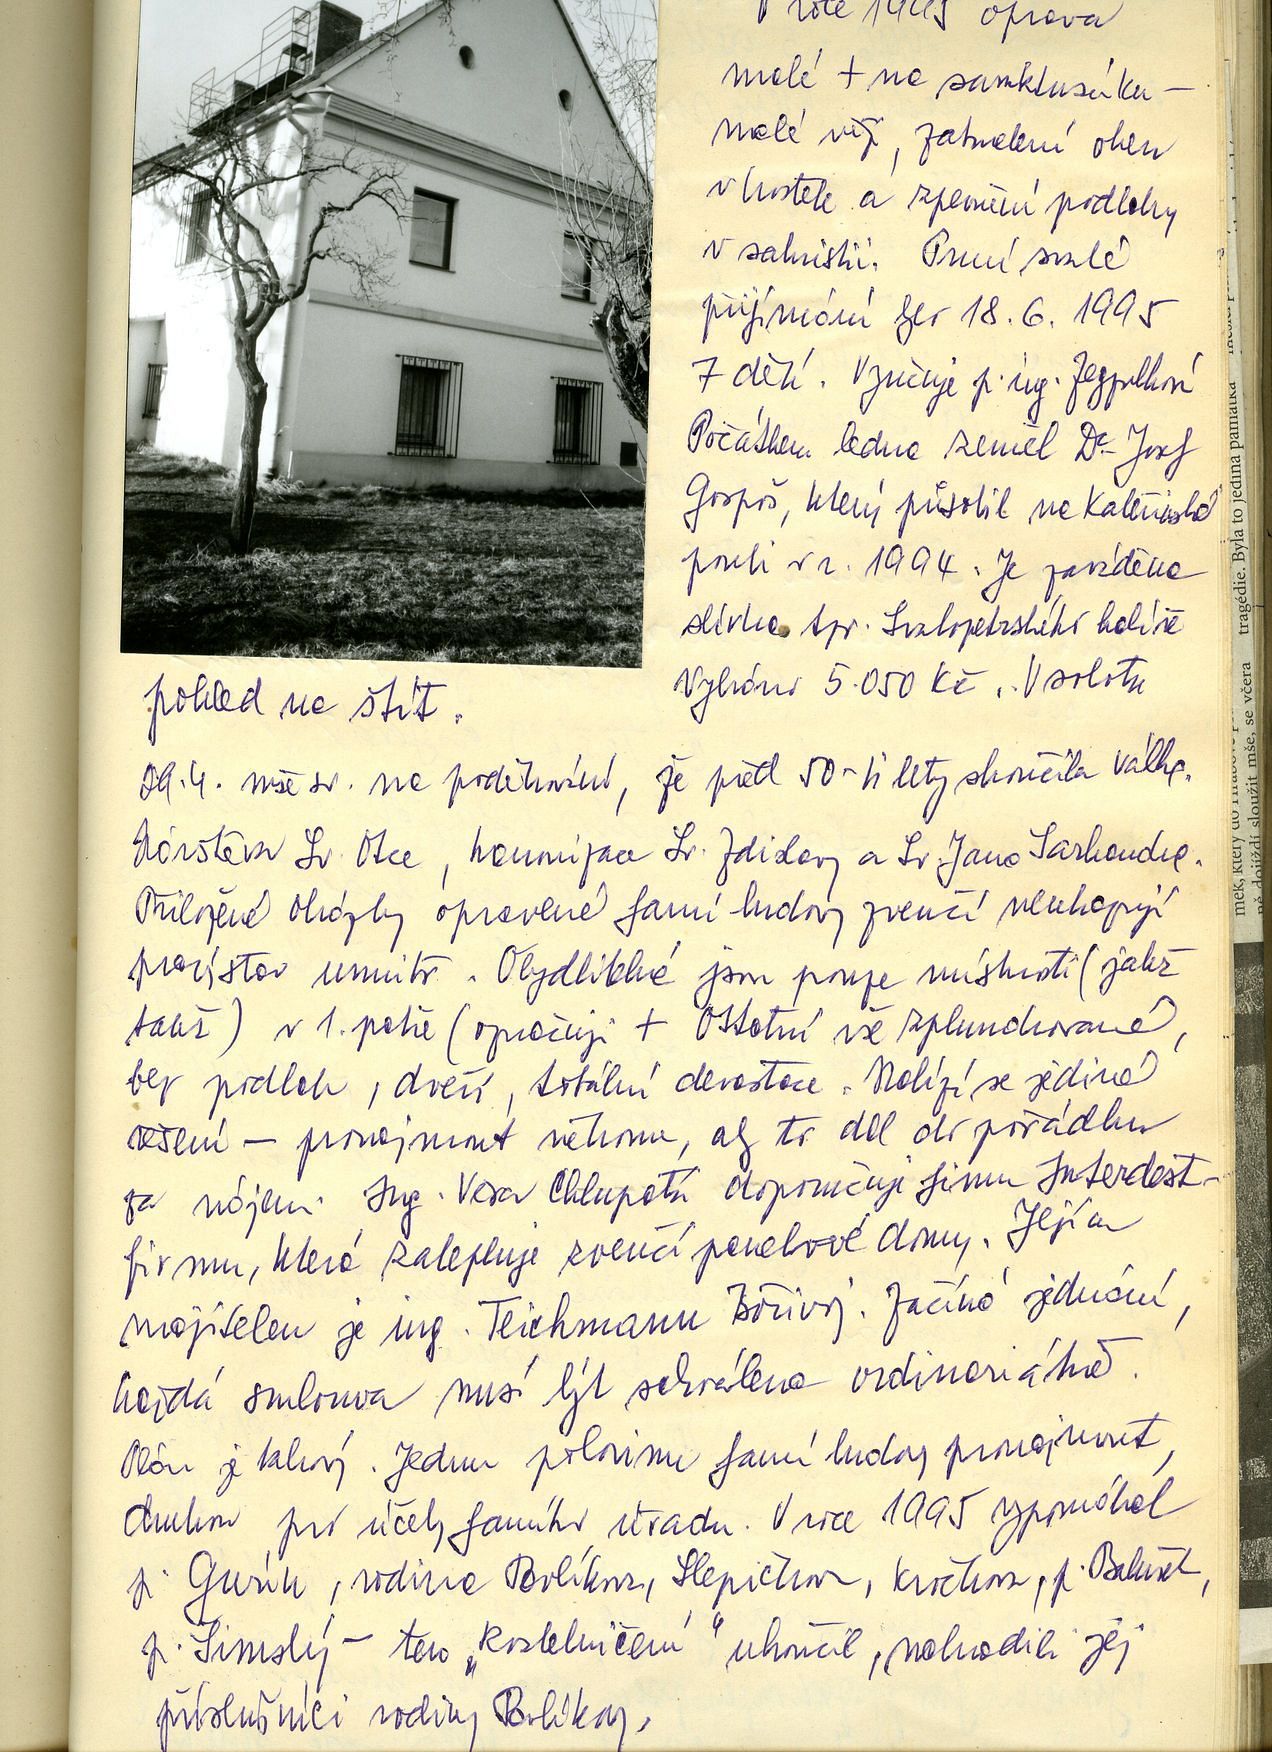 V roce 1995 oprava
malé + na sanktusáku –
malé věž, zatmelení oken
v kostele a zpevnění podlahy
v sakristii. První svaté
přijímání ger 18. 6. 1995
7 dětí. Vyučuje p. ing.
Počátkem ledna zemřel Dr. Josef
Gospoš, který působil na Kateřinské
pouti v r. 1994. Je zaváděna
sbírka tzv. Svatopetrského haléře
Vybráno 5.050 Kč. V sobotu
pohled na štít.
29.4. mše sv. na poděkování, že před 50-ti lety skončila válka.
Návštěva Sv. Otce, kanonizace Sv. Zdislavy a Sv. Jana Sarkandra.
Přiložené obrázky opravené farní budovy zvenčí neukazují
pravý stav uvnitř. Obydlitelné jsou pouze místnosti (jakž
takž) v 1. patře (opračují + Ostatní vše zplundrované,
bez podlah, dveří, totální devastace. Nabízí se jediné
řešení – pronajmout někomu, aby to dal do pořádku
za nájem. Ing. Věra Chlupatá doporučuje firmu Interdest-
firmu, která zalepluje zvenčí panelové domy. Jejím
majitelem je ing. Teichmann Bořivoj. Začíná jednání,
každá smlouva musí být schválena ordinariátem.
Plán je takový. Jednu polovinu farní budovy pronajmout,
druhou pro účely farního úřadu. V roce 1995 vypomáhal
p. Gurin, rodina Pavlíkova, Slepičkova, Kročkova, p.
p. Simský – ten „kostelničení“ ukončil, nahradili jej
příslušníci rodiny Pavlíkovy.
mek, který do
ně dojíždí sloužit mše, se včera
tragédie. Byla to jediná památka